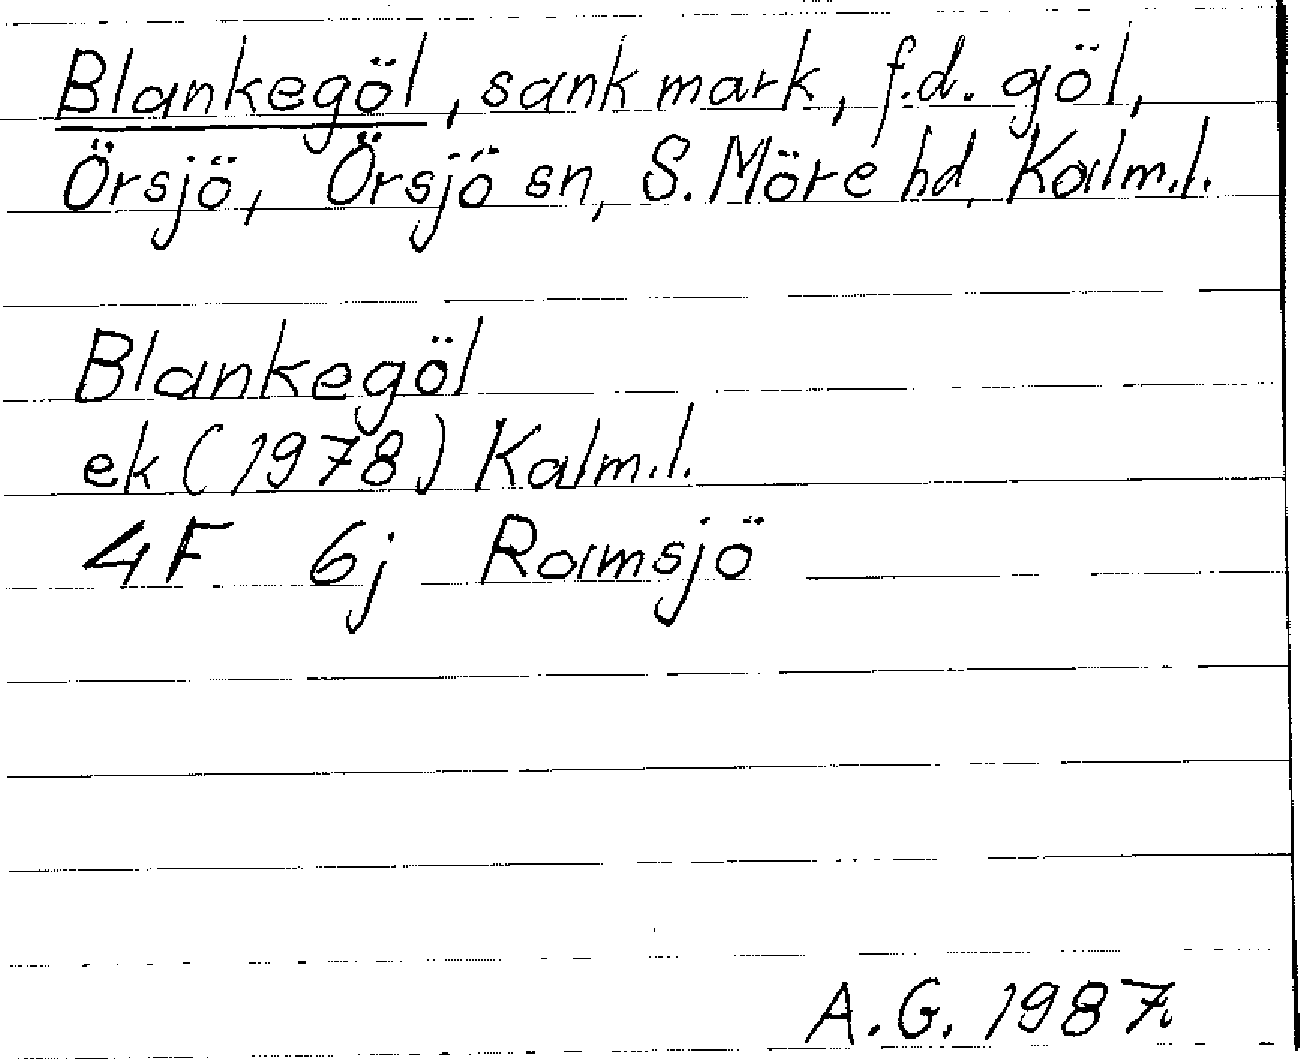 Blankegöl, sank mark, f.d. göl,
Örsjö, Örsjö sn, S. Möre hd, Kalm.l.
Blankegöl
ek (1978) Kalm.l.
4F 6j Ramsjö
A.G. 1987.